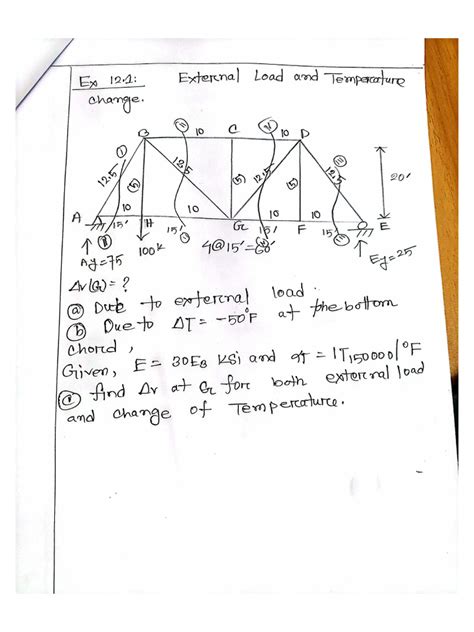 Ex 12.1: External Load and Temperature
change.
B 10 C 10 D
I II V III
12.5 (5) 12.5 (5) 12.5 (5) 12.5
20'
A 10 H 10 G 10 F 10 E
15' 15' 15' 15'
Ay=75 100k 4@15'=60' Ey=25
Δv(G)=?
(a) Due to external load.
(b) Due to ΔT = -50°F at the bottom
chord,
Given, E = 30E3 ksi and αt = 1/150000/°F
(c) find Δv at G for both external load
and change of Temperature.